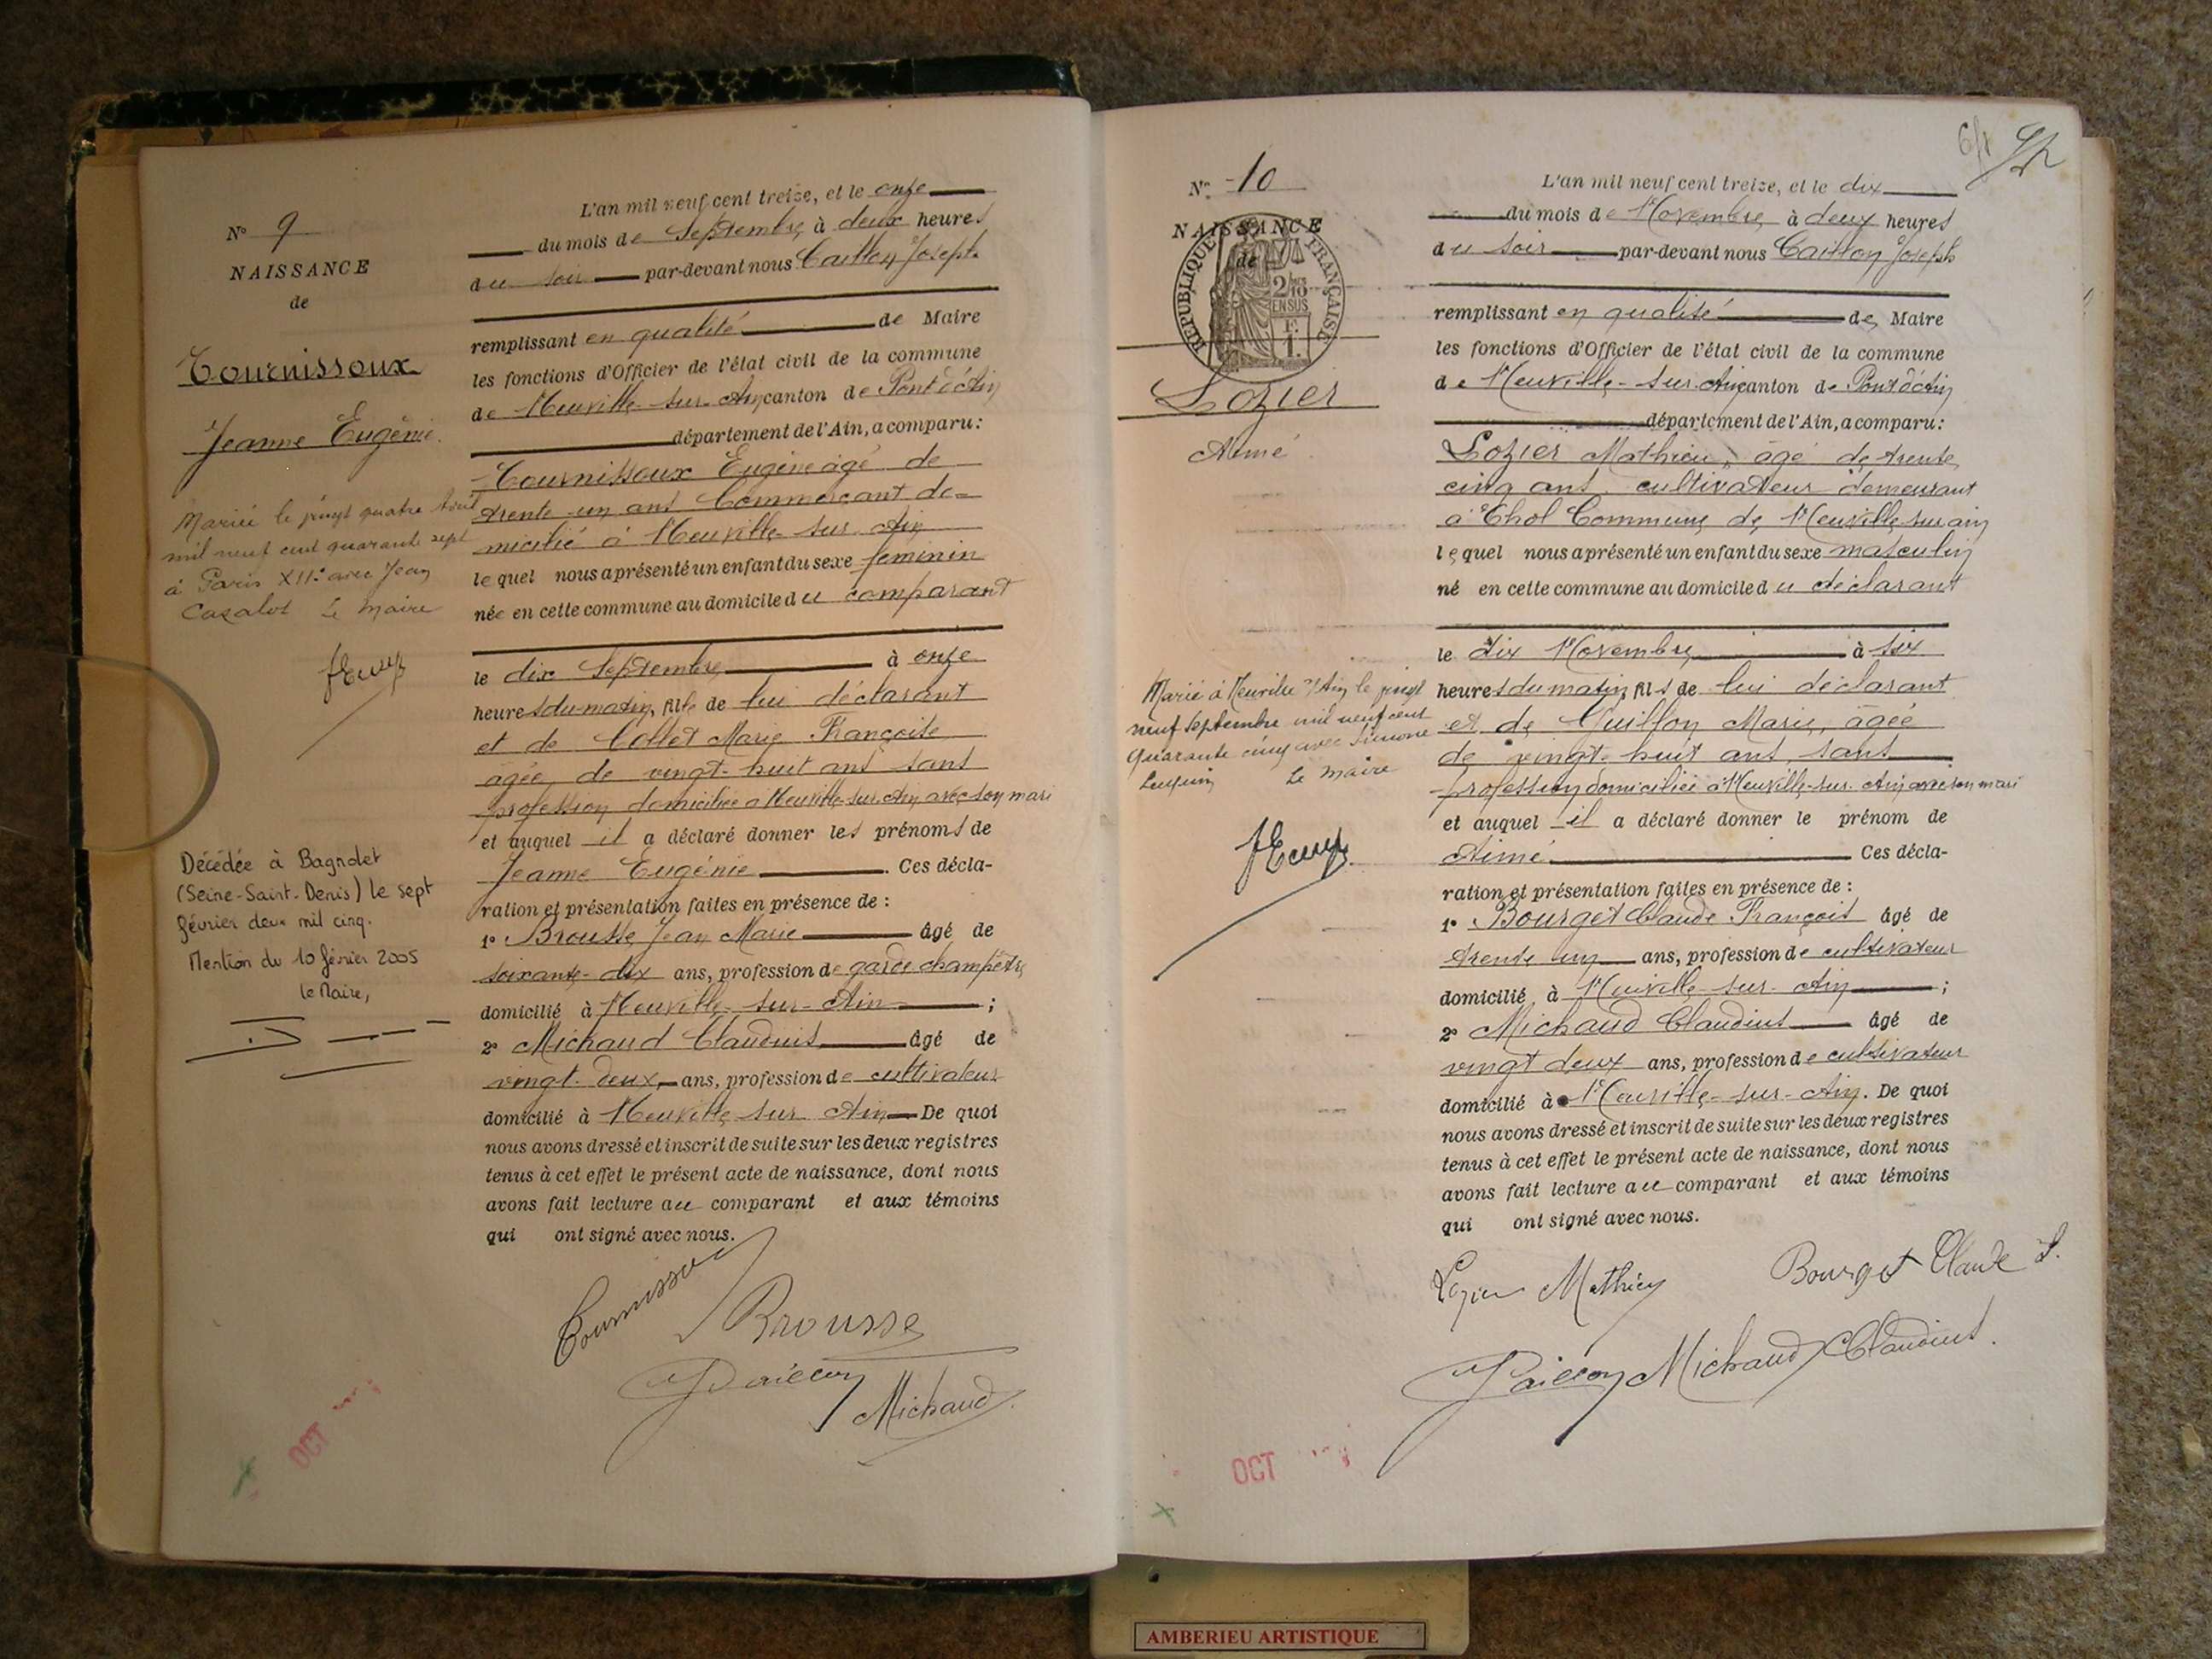 N° 9
NAISSANCE
de
Tournissoux
Jeanne Eugénie
Mariée le vingt quatre Avril
mil neuf cent quarante sept
à Paris XIIe avec Jean
Cazalot Le Maire
Décédée à Bagnolet
(Seine-Saint-Denis) le sept
février deux mil cinq.
Mention du 10 février 2005
le Maire,
L'an mil neuf cent treize, et le onze
du mois de Septembre à deux heures
du soir par-devant nous Caillon Joseph
remplissant en qualité de Maire
les fonctions d'Officier de l'état civil de la commune
de Neuville-sur-Ain canton de Pont d'Ain
département de l'Ain, a comparu:
Tournissoux Eugène âgé de
trente-un ans Commerçant do-
micilié à Neuville-sur-Ain
lequel nous a présenté un enfant du sexe féminin
née en cette commune au domicile du comparant
le dix Septembre à onze
heures du matin, fille de lui déclarant
et de Collet Marie Françoise
âgée de vingt-huit ans sans
profession domiciliée à Neuville-sur-Ain avec son mari
et auquel il a déclaré donner les prénoms de
Jeanne Eugénie. Ces décla-
ration et présentation faites en présence de :
1° Brousse Jean Marie âgé de
soixante-dix ans, profession de garde champêtre
domicilié à Neuville-sur-Ain ;
2° Michaud Claudius âgé de
vingt-deux ans, profession de cultivateur
domicilié à Neuville-sur-Ain De quoi
nous avons dressé et inscrit de suite sur les deux registres
tenus à cet effet le présent acte de naissance, dont nous
avons fait lecture au comparant et aux témoins
qui ont signé avec nous.
Tournissoux
Brousse
Caillon
Michaud
OCT
N° 10
NAISSANCE
de
REPUBLIQUE FRANÇAISE
2/10
EN SUS
Lozier
Aimé
Marié à Neuville s/Ain le vingt
neuf septembre mil neuf cent
quarante cinq avec Simone
Le Maire
L'an mil neuf cent treize, et le dix
du mois de Novembre à deux heures
du soir par-devant nous Caillon Joseph
remplissant en qualité de Maire
les fonctions d'Officier de l'état civil de la commune
de Neuville-sur-Ain canton de Pont d'Ain
département de l'Ain, a comparu:
Lozier Mathieu, âgé de trente
cinq ans cultivateur demeurant
à Thol Commune de Neuville sur ain
lequel nous a présenté un enfant du sexe masculin
né en cette commune au domicile du déclarant
le dix Novembre à six
heures du matin, fils de lui déclarant
et de Guillon Marie, âgée
de vingt-huit ans, sans
profession domiciliée à Neuville-sur-Ain avec son mari
et auquel il a déclaré donner le prénom de
Aimé Ces décla-
ration et présentation faites en présence de :
1° Bourget Claude François âgé de
trente un ans, profession de cultivateur
domicilié à Neuville-sur-Ain ;
2° Michaud Claudius âgé de
vingt deux ans, profession de cultivateur
domicilié à Neuville-sur-Ain. De quoi
nous avons dressé et inscrit de suite sur les deux registres
tenus à cet effet le présent acte de naissance, dont nous
avons fait lecture au comparant et aux témoins
qui ont signé avec nous.
Lozier Mathieu
Bourget Claude F.
Caillon Michaud Claudius.
OCT
AMBERIEU ARTISTIQUE